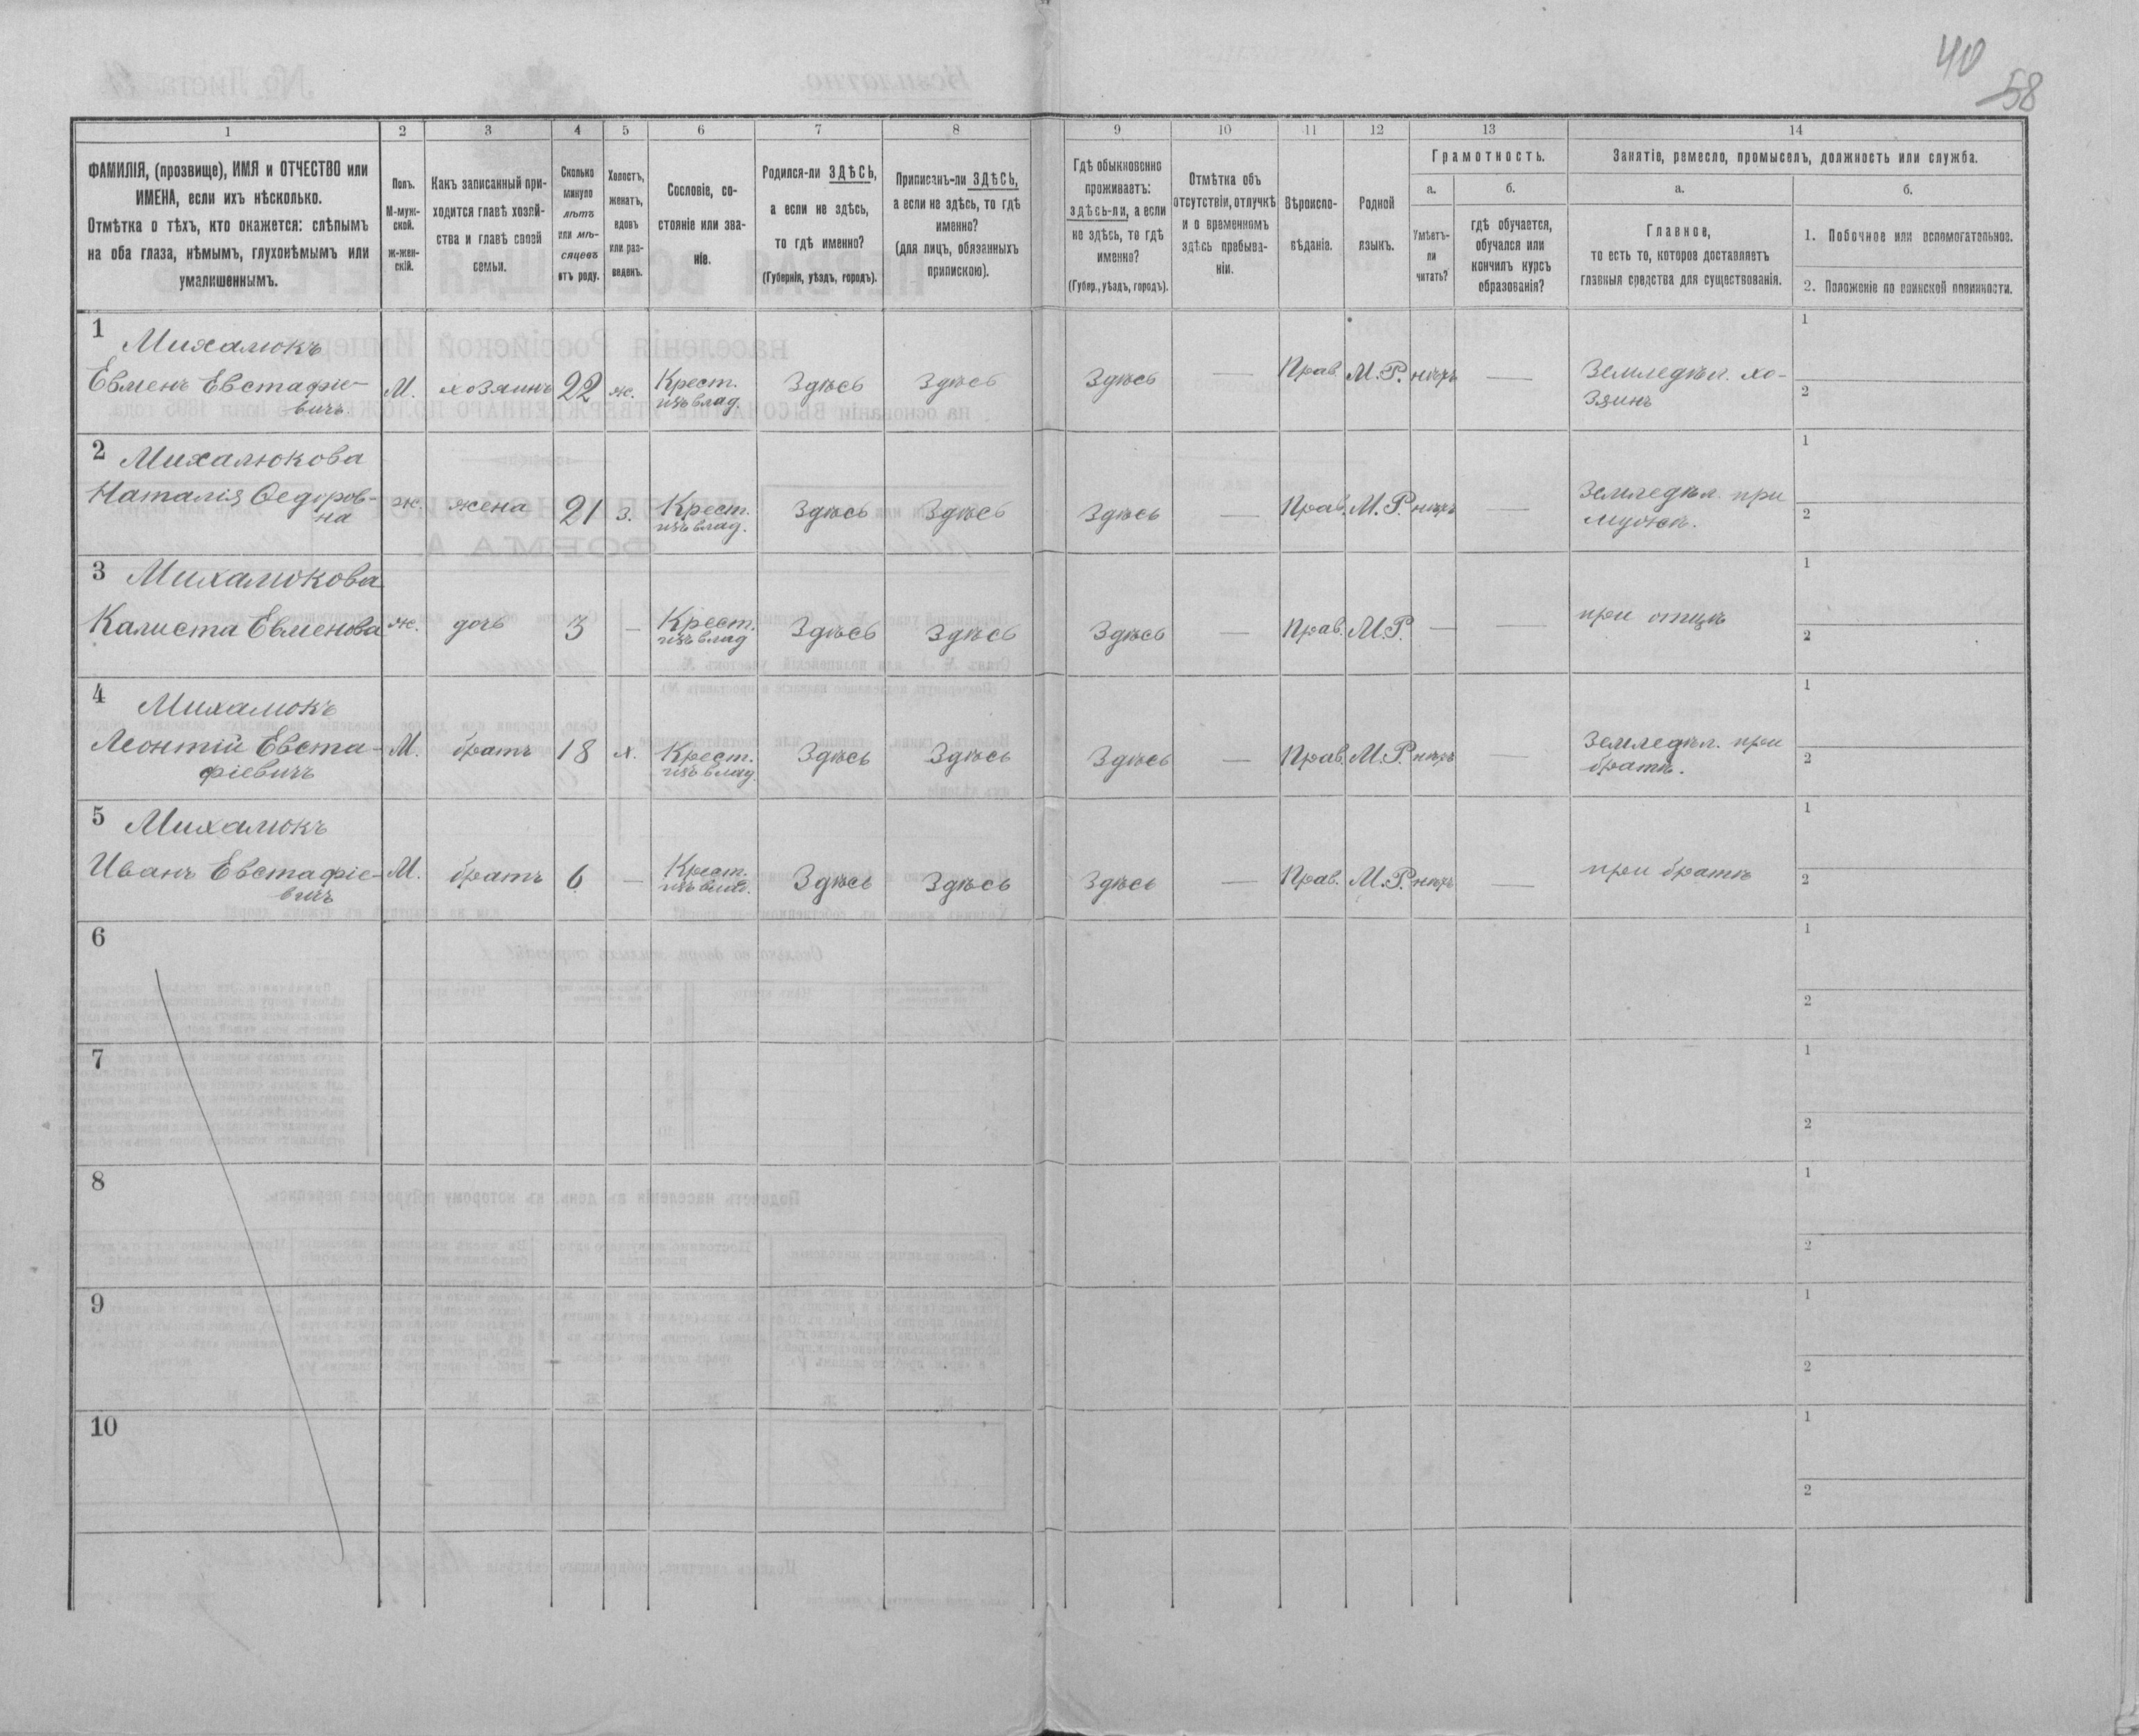 40
58
1 2 3 4 5 6 7 8 9 10 11 12 13 14
ФАМИЛІЯ, (прозвище), ИМЯ и ОТЧЕСТВО или
ИМЕНА, если ихъ нѣсколько.
Отмѣтка о тѣхъ, кто окажется: слѣпымъ
на оба глаза, нѣмымъ, глухонѣмымъ или
умалишеннымъ.
Полъ.
М-муж-
ской.
ж-жен-
скій.
Какъ записанный при-
ходится главѣ хозяй-
ства и главѣ своей
семьи.
Сколько
минуло
лѣтъ
или мѣ-
сяцевъ
отъ роду.
Холостъ,
женатъ,
вдовъ
или раз-
веденъ.
Сословіе, со-
стояніе или зва-
ніе.
Родился-ли ЗДѢСЬ,
а если не здѣсь,
то гдѣ именно?
(Губернія, уѣздъ, городъ).
Приписанъ-ли ЗДѢСЬ,
а если не здѣсь, то гдѣ
именно?
(для лицъ, обязанныхъ
припискою).
Гдѣ обыкновенно
проживаетъ:
здѣсь-ли, а если
не здѣсь, то гдѣ
именно?
(Губер., уѣздъ, городъ).
Отмѣтка объ
отсутствіи, отлучкѣ
и о временномъ
здѣсь пребыва-
ніи.
Вѣроиспо-
вѣданіе.
Родной
языкъ.
Грамотность.
а.
Умѣетъ-
ли
читать?
б.
гдѣ обучается,
обучался или
кончилъ курсъ
образованія?
Занятіе, ремесло, промыселъ, должность или служба.
а.
Главное,
то есть то, которое доставляетъ
главныя средства для существованія.
б.
1. Побочное или вспомогательное.
2. Положеніе по воинской повинности.
1 Михалюкъ
Евменъ Евстафіе-
вичъ
М. хозяинъ 22 ж. Крест.
изъ влад.
Здѣсь Здѣсь Здѣсь — Прав. М.Р. нѣтъ —
Земледѣл. хо-
зяинъ
1
2
2 Михалюкова
Наталія Ѳедоров-
на
ж. жена 21 з. Крест.
изъ влад.
Здѣсь Здѣсь Здѣсь — Прав. М.Р. нѣтъ —
Земледѣл. при
мужѣ.
1
2
3 Михалюкова
Калиста Евменова
ж. дочь 3 — Крест.
изъ влад
Здѣсь Здѣсь Здѣсь — Прав. М.Р. — —
при отцѣ
1
2
4 Михалюкъ
Леонтій Евста-
фіевичъ
М. братъ 18 х. Крест.
изъ влад.
Здѣсь Здѣсь Здѣсь — Прав. М.Р. нѣтъ —
Земледѣл. при
братѣ.
1
2
5 Михалюкъ
Иванъ Евстафіе-
вичъ
М. братъ 6 — Крест.
изъ влад.
Здѣсь Здѣсь Здѣсь — Прав. М.Р. нѣтъ —
при братѣ
1
2
6
1
2
7
1
2
8
1
2
9
1
2
10
1
2